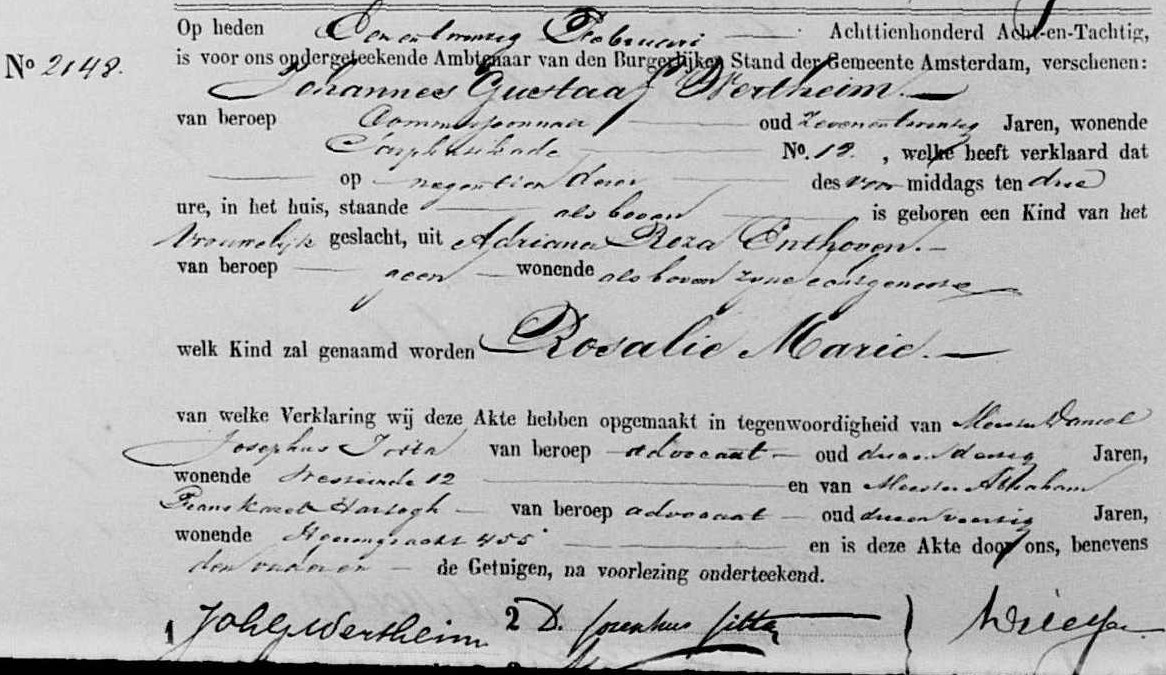 Op heden Een en twintig Februari Achttienhonderd Acht-en-Tachtig,
No 2148. is voor ons ondergeteekende Ambtenaar van den Burgerlijken Stand der Gemeente Amsterdam, verschenen:
Johannes Gustaaf Wertheim.
van beroep Commissionnair oud Zevenentwintig Jaren, wonende
Sarphatikade No. 12. , welke heeft verklaard dat
op negentien dezer des voor middags ten drie
ure, in het huis, staande als boven is geboren een Kind van het
Vrouwelijk geslacht, uit Adriana Roza Enthoven.
van beroep geen wonende als boven zijne echtgenoote
welk Kind zal genaamd worden Rosalie Marie.
van welke Verklaring wij deze Akte hebben opgemaakt in tegenwoordigheid van Meester Daniel
Josephus Jitta van beroep advocaat oud drieendertig Jaren,
wonende Westeinde 12 en van Meester Abraham
Frans Karel Hartogh van beroep advocaat oud drieenveertig Jaren,
wonende Heerengracht 455 en is deze Akte door ons, benevens
den vader en de Getuigen, na voorlezing onderteekend.
1 Joh G Wertheim 2 D. Josephus Jitta